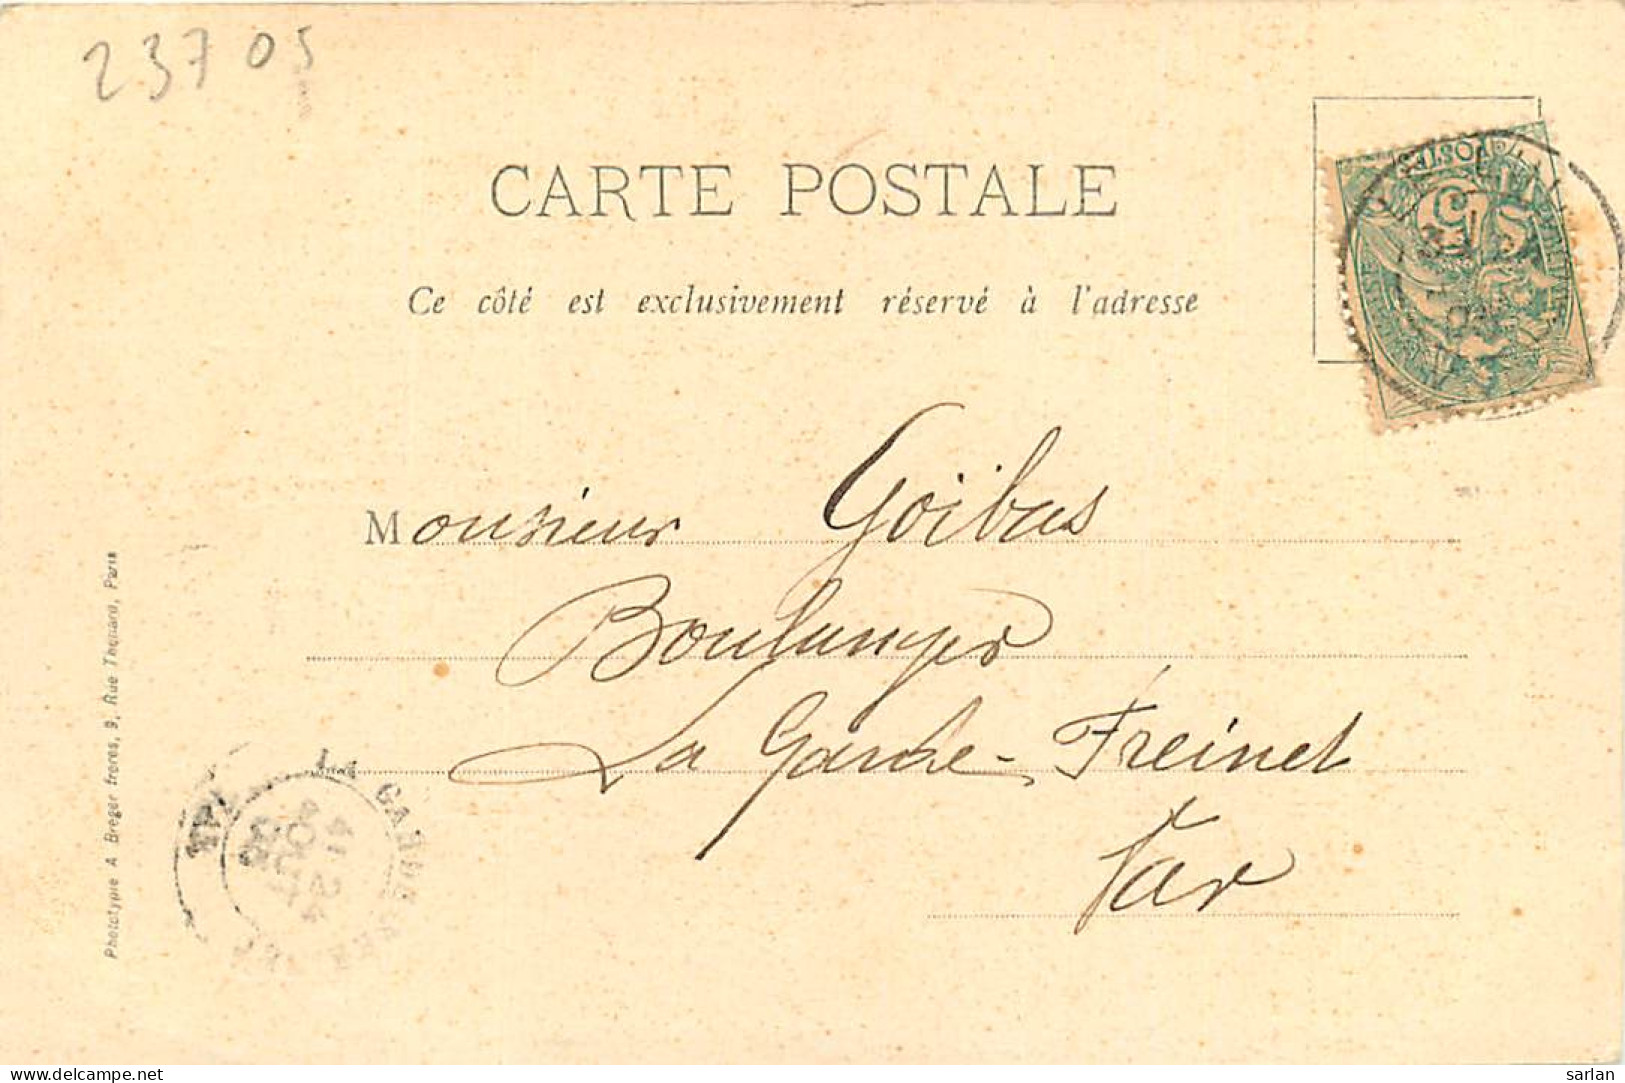 23705
CARTE POSTALE
Ce côté est exclusivement réservé à l'adresse
POSTES
Monsieur Goibus
Boulanger
La Garde-Freinet
Var
Phototypie A Breger frères, 9, Rue Thénard, Paris
LA GARDE FREINET
VAR
AOUT
delcampe.net
sarlan